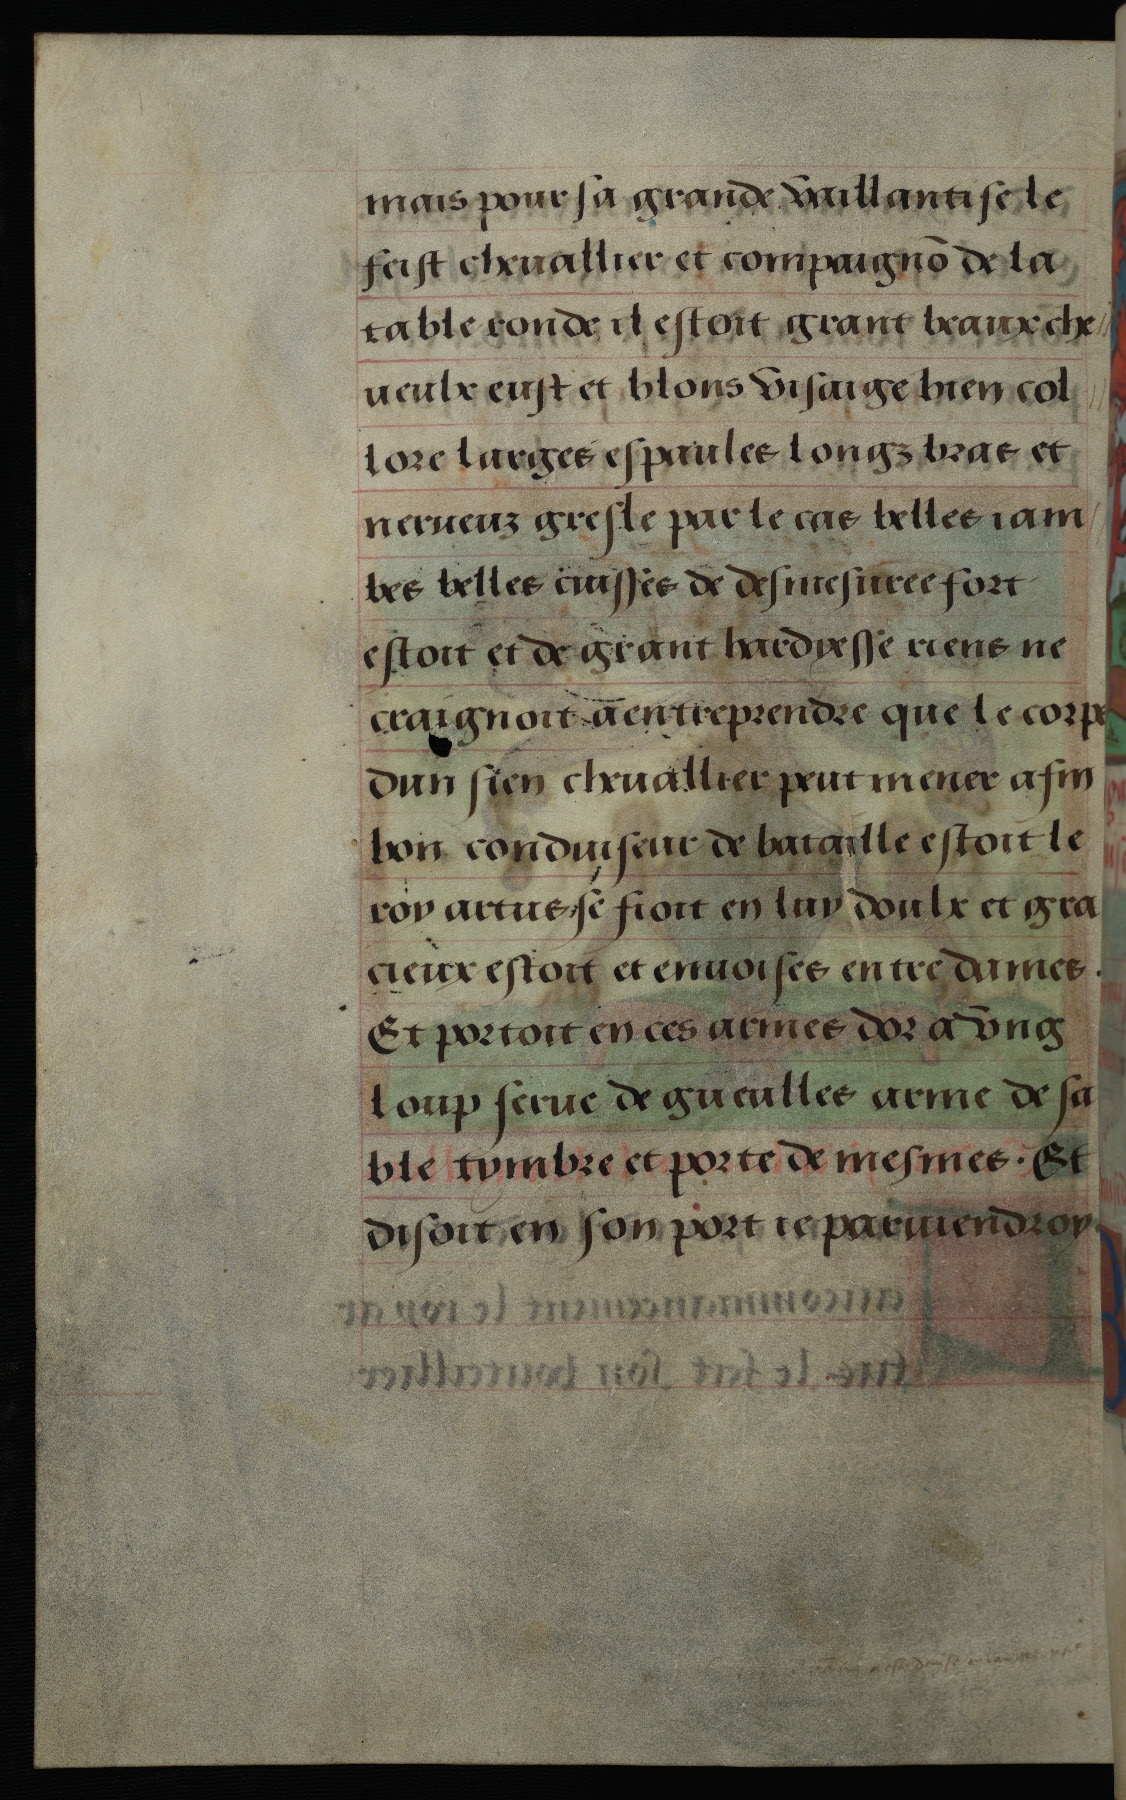 mais pour sa grande vaillantise le
feist cheuallier et compaignō de la
table ronde il estoit grant beaux che//
ueulx eust et blons visaige bien col//
lore larges espaules longz bras et
nerueuz gresle par le cas belles iam/
bes belles cuisses de desmesuree fort
estoit et de grant hardyesse riens ne
craignoit a entreprendre que le corps
dun sien cheuallier peut mener afin
bon conduiseur de bataille estoit le
roy artus se fioit en luy doulx et gra
cieux estoit et enuoises entre dames .
Et portoit en ces armes dor a vng
loup serue de gueulles arme de sa
ble tymbre et porte de mesmes . Et
disoit en son port ie paruiendroy